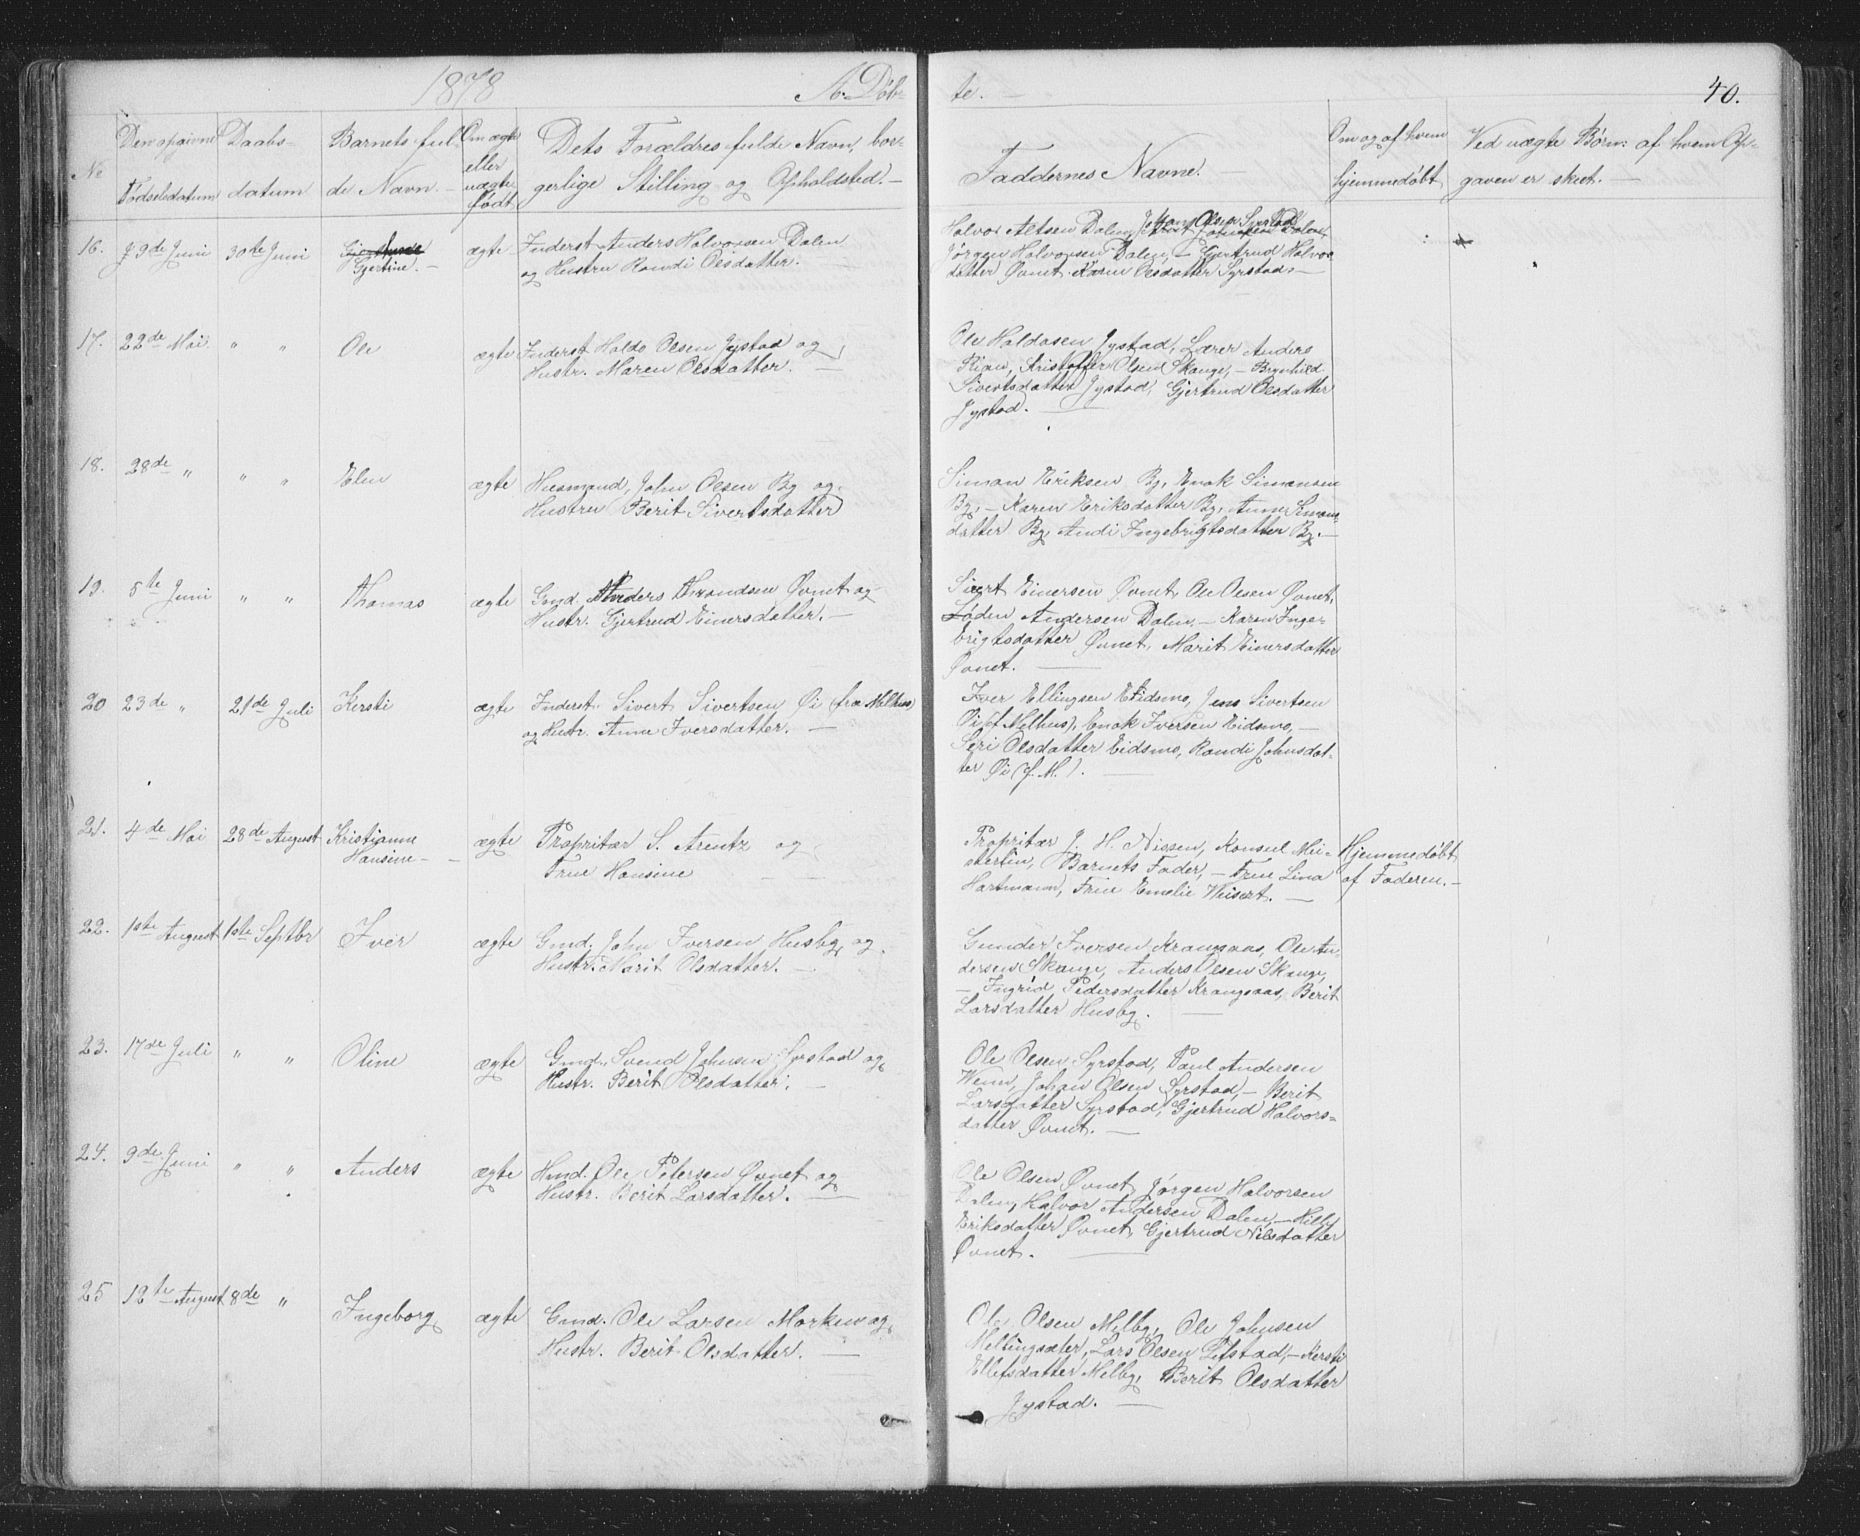 1878
A. Døbte.
40.
No
Den opgivne Fødselsdatum
Daabsdatum
Barnets fulde Navn.
Om ægte eller uægte født
Dets Forældres fulde Navn, borgerlige Stilling og Opholdsted.
Faddernes Navne.
Om og af hvem hjemmedøbt
Ved uægte Børn: af hvem Opgaven er skeet.
16. 9de Juni 30te Juni Gjertine. ægte Inderst Anders Halvorsen Dalen
og Hustru Randi Olsdatter.
Halvor Altsen Dalen, Johan Olsen Syrstad
Jørgen Halvorsen Dalen, – Gjertrud Halvors
datter Øvnet. Karen Olsdatter Syrstad. –
17. 22de Mai " " Ole ægte Inderst Haldo Olsen Jystad og
Hustr. Maren Olsdatter. –
Ole Haldosen Jystad, Lærer Anders
Rian, Kristoffer Olsen Skange, – Brynhild
Sivertsdatter Jystad, Gjertrud Olsdatter
Jystad. –
18. 28de " " " Elen ægte Husmand, John Olsen By og
Hustru Berit Sivertsdatter
Simon Eriksen By, Enok Simonsen
By, – Karen Eriksdatter By, Anne Simons
datter By, Andi Ingebrigtsdatter By. –
19. 5te Juni " " Thomas ægte Gmd. Anders Throndsen Øvnet og
Hustr. Gjertrud Einersdatter. –
Sivert Einersen Øvnet, Ole Olsen Øvnet,
Loden Andersen Dalen, – Karen Inge-
brigtsdatter Øvnet, Marit Einersdatter
Øvnet. –
20 23de " 21de Juli Kersti ægte Inderst Sivert Sivertsen Øi (fra Melhus)
og Hustr. Anne Iversdatter. –
Iver Ellingsen Eidsmo, Jens Sivertsen
Øi (f. Melhus), Enok Iversen Eidsmo, –
Seri Olsdatter Eidsmo, Randi Johnsdat-
ter Øi (f. M.). –
21. 4de Mai 28de August Kristianne
Hansine – ægte Propritær S. Arentz og
Frue Hansine
Propritær J. H. Nissen, Konsul
Barnets Fader, – Frue Lina
Hartmann, Frue Emelie –
Hjemmedøbt
af Faderen. –
22. 1ste August 1ste Septbr Iver ægte Gmd. John Iversen Husby og
Hustr. Marit Olsdatter. –
Gunder Iversen Krangsaas, Ole An-
dersen Skange, Anders Olsen Skange,
– Ingrid Pedersdatter Krangsaas, Berit
Larsdatter Husby. –
23. 17de Juli " " Oline ægte Gmd. Svend Johnsen Syrstad og
Hustr. Berit Olsdatter. –
Ole Olsen Syrstad, Paul Andersen
Wenn, Johan Olsen Syrstad, – Berit
Larsdatter Syrstad, Gjertrud Halvors-
datter Øvnet. –
24. 9de Juni " " Anders ægte Hmd. Ole Petersen Øvnet og
Hustr. Berit Larsdatter. –
Ole Olsen Øvnet, Jørgen Halvorsen
Dalen, Halvor Andersen Dalen, –
Eriksdatter Øvnet, Gjertrud Nilsdatter
Øvnet. –
25 12te August 8de " Ingeborg ægte Gmd. Ole Larsen Morken og
Hustr. Berit Olsdatter. –
Ole Olsen Melby, Ole Johnsen
Mellingsæter, Lars Olsen – Kersti
Ellefsdatter Melby, Berit Olsdatter
Jystad. –